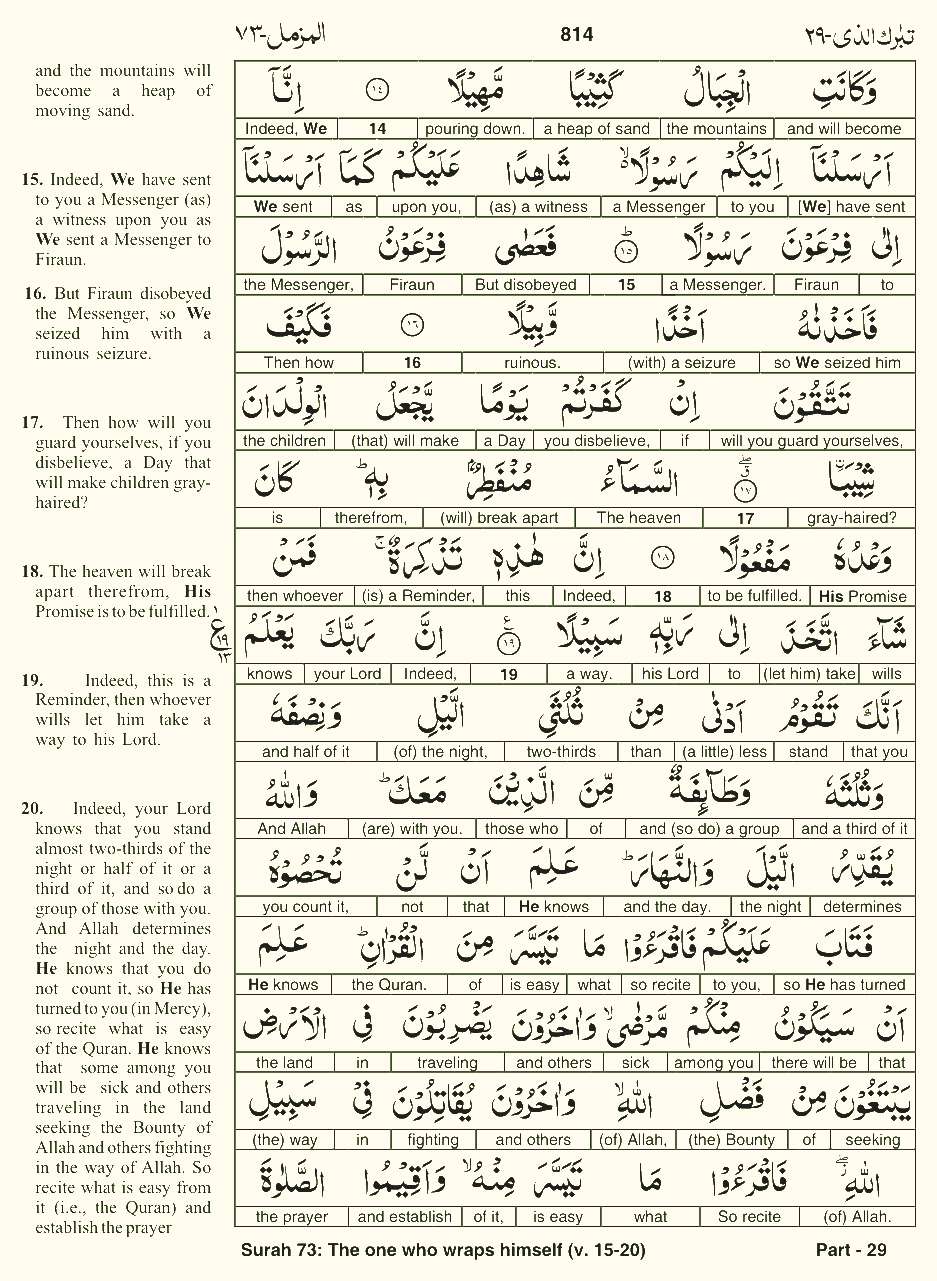 تبٰرك الذى-۲۹ 814 المزمل-۷۳
and the mountains will
become a heap of
moving sand.
15. Indeed, We have sent
to you a Messenger (as)
a witness upon you as
We sent a Messenger to
Firaun.
16. But Firaun disobeyed
the Messenger, so We
seized him with a
ruinous seizure.
17. Then how will you
guard yourselves, if you
disbelieve, a Day that
will make children gray-
haired?
18. The heaven will break
apart therefrom, His
Promise is to be fulfilled.
19. Indeed, this is a
Reminder, then whoever
wills let him take a
way to his Lord.
20. Indeed, your Lord
knows that you stand
almost two-thirds of the
night or half of it or a
third of it, and so do a
group of those with you.
And Allah determines
the night and the day.
He knows that you do
not count it, so He has
turned to you (in Mercy),
so recite what is easy
of the Quran. He knows
that some among you
will be sick and others
traveling in the land
seeking the Bounty of
Allah and others fighting
in the way of Allah. So
recite what is easy from
it (i.e., the Quran) and
establish the prayer
وَكَانَتِ الْجِبَالُ كَثِيْبًا مَّهِيْلًا ۝۱۴ اِنَّاۤ
and will become the mountains a heap of sand pouring down. 14 Indeed, We
اَرْسَلْنَاۤ اِلَيْكُمْ رَسُوْلًا ۙ شَاهِدًا عَلَيْكُمْ كَمَاۤ اَرْسَلْنَاۤ
[We] have sent to you a Messenger (as) a witness upon you, as We sent
اِلٰى فِرْعَوْنَ رَسُوْلًا ۝۱۵ؕ فَعَصٰى فِرْعَوْنُ الرَّسُوْلَ
to Firaun a Messenger. 15 But disobeyed Firaun the Messenger,
فَاَخَذْنٰهُ اَخْذًا وَّبِيْلًا ۝۱۶ فَكَيْفَ
so We seized him (with) a seizure ruinous. 16 Then how
تَتَّقُوْنَ اِنْ كَفَرْتُمْ يَوْمًا يَّجْعَلُ الْوِلْدَانَ
will you guard yourselves, if you disbelieve, a Day (that) will make the children
شِيْبَا ۝۱۷ السَّمَآءُ مُنْفَطِرٌۢ بِهٖ ؕ كَانَ
gray-haired? 17 The heaven (will) break apart therefrom, is
وَعْدُهٗ مَفْعُوْلًا ۝۱۸ اِنَّ هٰذِهٖ تَذْكِرَةٌ ۚ فَمَنْ
His Promise to be fulfilled. 18 Indeed, this (is) a Reminder, then whoever
شَآءَ اتَّخَذَ اِلٰى رَبِّهٖ سَبِيْلًا ۝۱۹ اِنَّ رَبَّكَ يَعْلَمُ ع ۱۹ ۱۳
wills (let him) take to his Lord a way. 19 Indeed, your Lord knows
اَنَّكَ تَقُوْمُ اَدْنٰى مِنْ ثُلُثَىِ الَّيْلِ وَنِصْفَهٗ
that you stand (a little) less than two-thirds (of) the night, and half of it
وَثُلُثَهٗ وَطَآئِفَةٌ مِّنَ الَّذِيْنَ مَعَكَ ؕ وَاللّٰهُ
and a third of it and (so do) a group of those who (are) with you. And Allah
يُقَدِّرُ الَّيْلَ وَالنَّهَارَ ؕ عَلِمَ اَنْ لَّنْ تُحْصُوْهُ
determines the night and the day. He knows that not you count it,
فَتَابَ عَلَيْكُمْ فَاقْرَءُوْا مَا تَيَسَّرَ مِنَ الْقُرْاٰنِ ؕ عَلِمَ
so He has turned to you, so recite what is easy of the Quran. He knows
اَنْ سَيَكُوْنُ مِنْكُمْ مَّرْضٰى ۙ وَاٰخَرُوْنَ يَضْرِبُوْنَ فِى الْاَرْضِ
that there will be among you sick and others traveling in the land
يَبْتَغُوْنَ مِنْ فَضْلِ اللّٰهِ ۙ وَاٰخَرُوْنَ يُقَاتِلُوْنَ فِىْ سَبِيْلِ
seeking of (the) Bounty (of) Allah, and others fighting in (the) way
اللّٰهِ ۖ فَاقْرَءُوْا مَا تَيَسَّرَ مِنْهُ ۙ وَاَقِيْمُوا الصَّلٰوةَ
(of) Allah. So recite what is easy of it, and establish the prayer
Surah 73: The one who wraps himself (v. 15-20) Part - 29